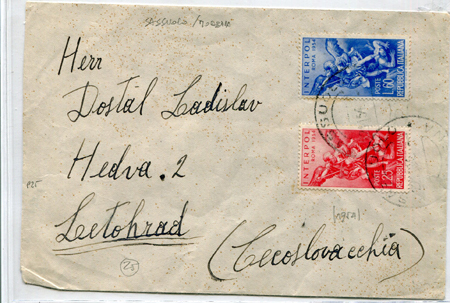 SASSUOLO / MODENA
Herr
Dostál Ladislav
Hedva. 2
Letohrad
(Cecoslovacchia)
INTERPOL
ROMA 1954
POSTE
L.60
REPUBBLICA ITALIANA
INTERPOL
ROMA 1954
POSTE
L.25
REPUBBLICA ITALIANA
25